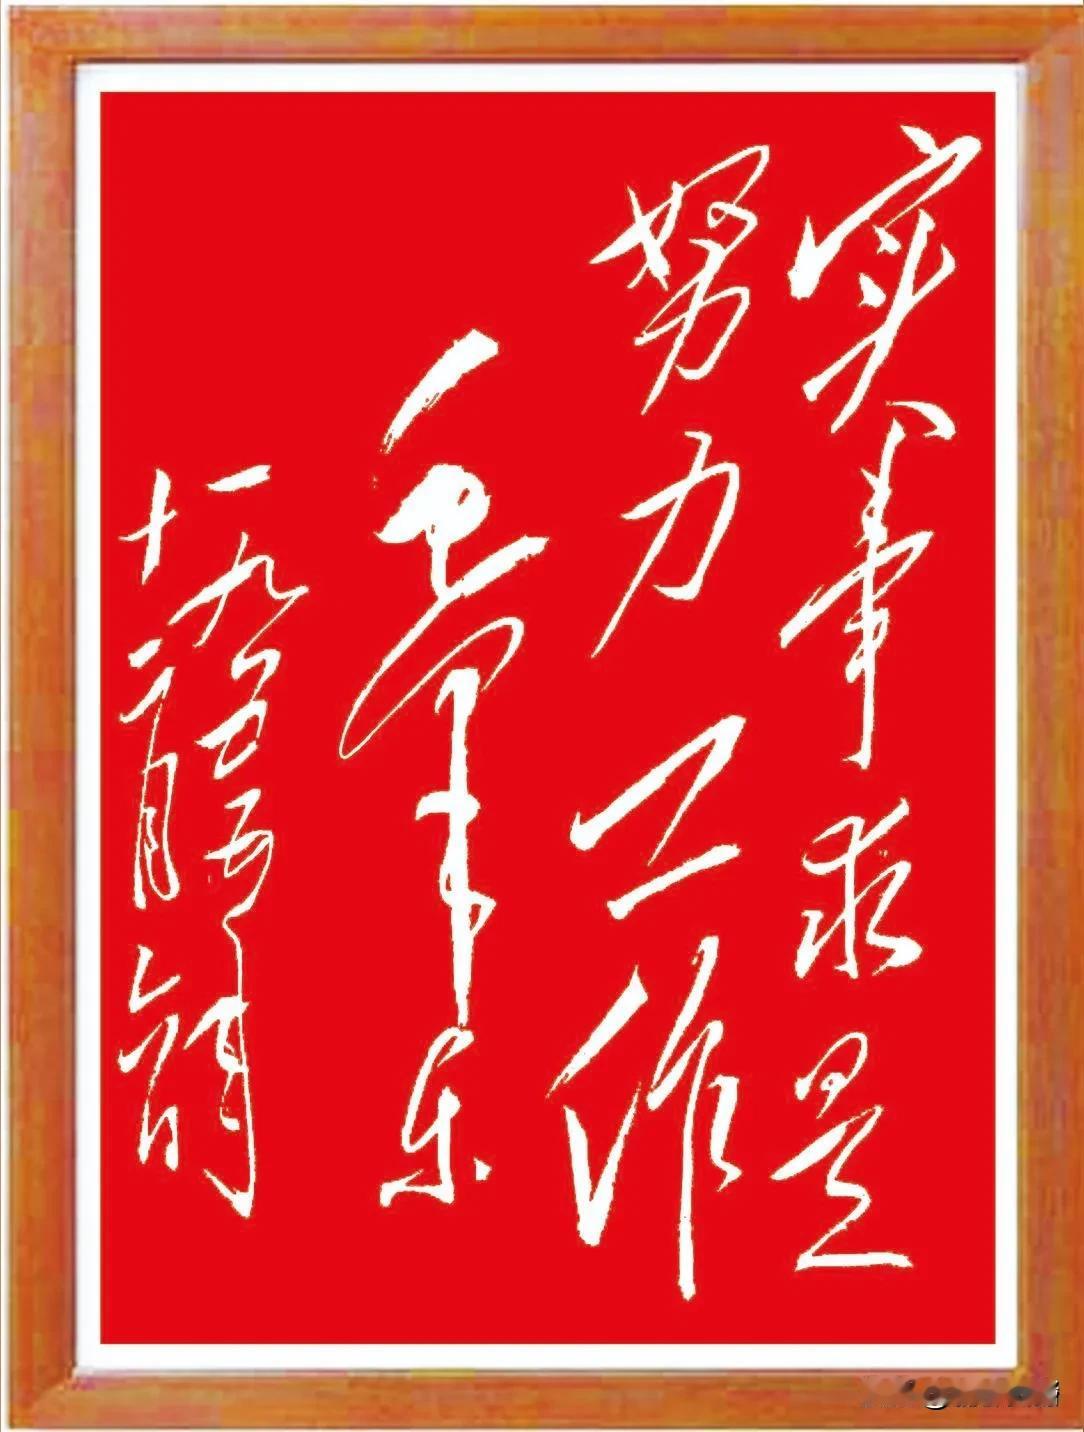 实事求是
努力工作
毛泽东
一九五五年
十二月